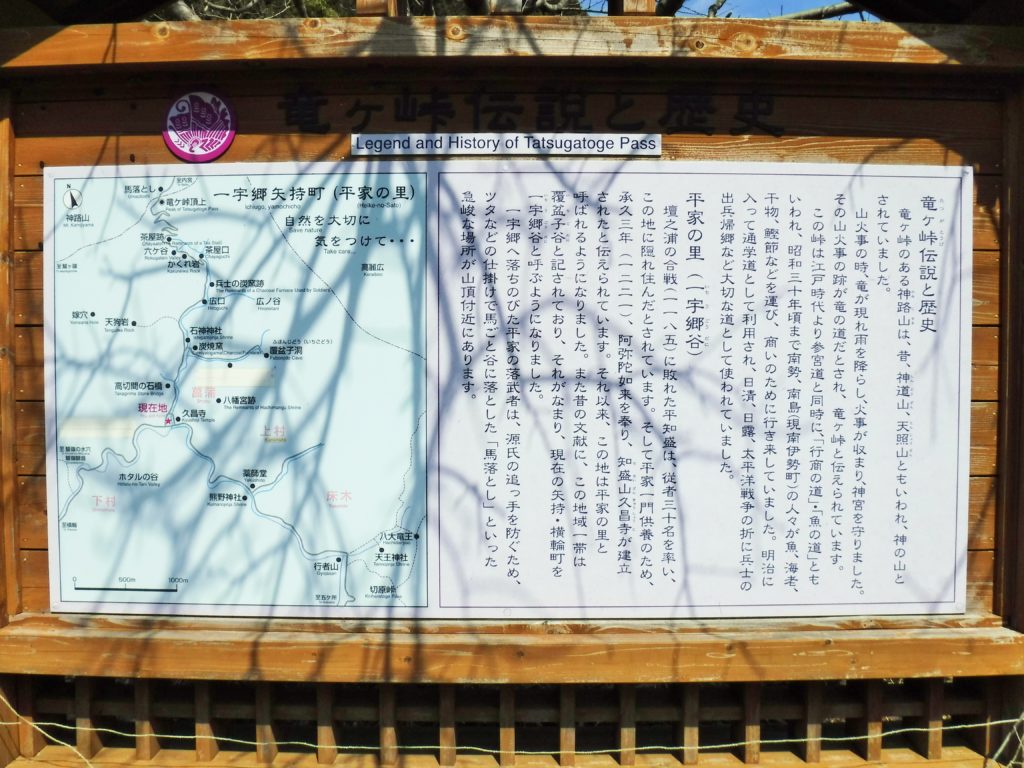 竜ヶ峠伝説と歴史
Legend and History of Tatsugatoge Pass
一宇郷矢持町 (平家の里)
Ichiugo, yamochicho
(Heike-no-Sato)
自然を大切に
Save nature
気をつけて・・・
Take care...
神路山
Mt. Kamijiyama
至内宮
馬落とし
竜ヶ峠頂上
Peak of Tatsugatoge Pass
茶屋跡
六ケ谷
茶屋口
かくれ岩
Kakureiwa
高麗広
兵士の炭窯跡
The Remnants of a Charcoal Furnace Used by Soldiers
広口
広ノ谷
嫁穴
天狗岩
Tenguiwa Rock
石神神社
Ishigamijinja Shrine
炭焼窯
ふぼんじどう (いちごどう)
覆盆子洞
高切間の石橋
菖蒲
八幡宮跡
The Remnants of Hachimangu Shrine
現在地
久昌寺
Kyushoji Temple
上村
ホタルの谷
Hotaru-no-Tani Valley
薬師堂
Yakushido
下村
熊野神社
Kumanojinja Shrine
床木
八大竜王
天王神社
Tennojinja Shrine
行者山
Gyojasan
切原峠
至五ケ所
0 500m 1000m
竜ヶ峠伝説と歴史
たつがとうげ
竜ヶ峠のある神路山は、昔、神道山、天照山ともいわれ、神の山と
されていました。
山火事の時、竜が現れ雨を降らし、火事が収まり、神宮を守りました。
その山火事の跡が竜の道だとされ、竜ヶ峠と伝えられています。
この峠は江戸時代より参宮道と同時に、「行商の道」・「魚の道」とも
いわれ、昭和三十年頃まで南勢、南島(現南伊勢町)の人々が魚、海老、
干物、鰹節などを運び、商いのために行き来していました。明治に
入って通学道として利用され、日清、日露、太平洋戦争の折に兵士の
出兵帰郷など大切な道として使われていました。
平家の里 (一宇郷谷)
壇之浦の合戦(一一八五)に敗れた平知盛は、従者三十名を率い、
この地に隠れ住んだとされています。そして平家一門供養のため、
承久三年(一二二一)、阿弥陀如来を奉り、知盛山久昌寺が建立
されたと伝えられています。それ以来、この地は平家の里と
呼ばれるようになりました。また昔の文献に、この地域一帯は
覆盆子谷と記されており、それがなまり、現在の矢持・横輪町を
一宇郷谷と呼ぶようになりました。
一宇郷へ落ちのびた平家の落武者は、源氏の追っ手を防ぐため、
ツタなどの仕掛けで馬ごと谷に落とした「馬落とし」といった
急峻な場所が山頂付近にあります。